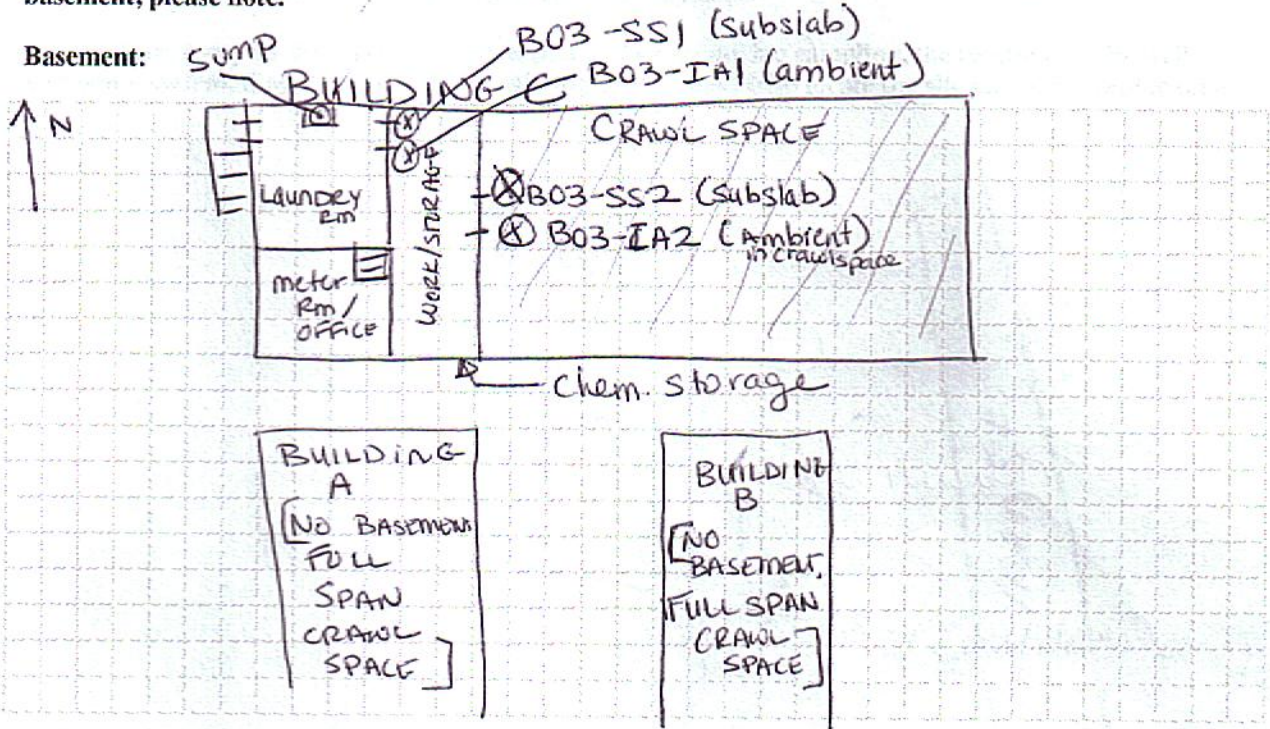 basement, please note.
Basement:
SUMP
B03-SS1 (subslab)
B03-IA1 (ambient)
BUILDING C
N
CRAWL SPACE
LAUNDRY
Rm
WORK/STORAGE
B03-SS2 (subslab)
B03-IA2 (Ambient)
in crawlspace
meter
Rm/
OFFICE
Chem. Storage
BUILDING
A
[NO BASEMENT
FULL
SPAN
CRAWL
SPACE]
BUILDING
B
[NO
BASEMENT,
FULL SPAN
CRAWL
SPACE]